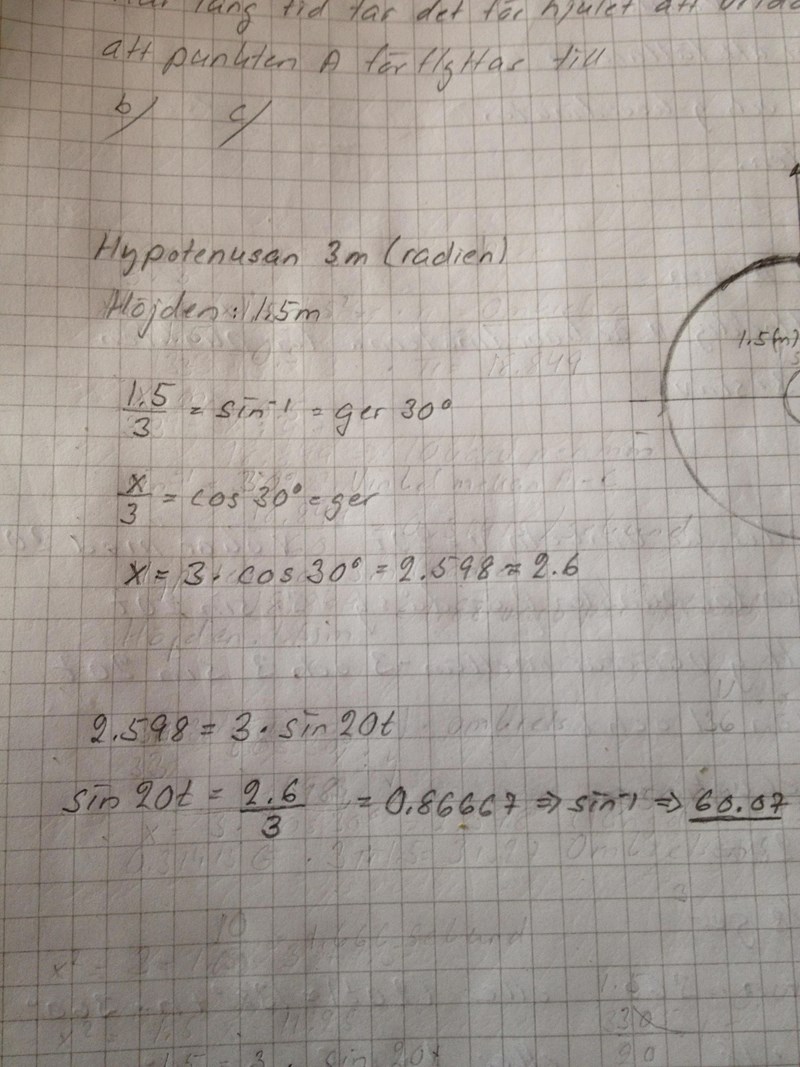 lång tid tar det för hjulet att
att punkten A förflyttas till
b/ c/
Hypotenusan 3m (radien)
Höjden: 1.5m
1.5(m)
1.5/3 = sin⁻¹ = ger 30°
x/3 = cos 30° = ger
x = 3 · cos 30° = 2.598 ≈ 2.6
2.598 = 3 · sin 20t
sin 20t = 2.6/3 = 0.86667 ⇒ sin⁻¹ ⇒ 60.07